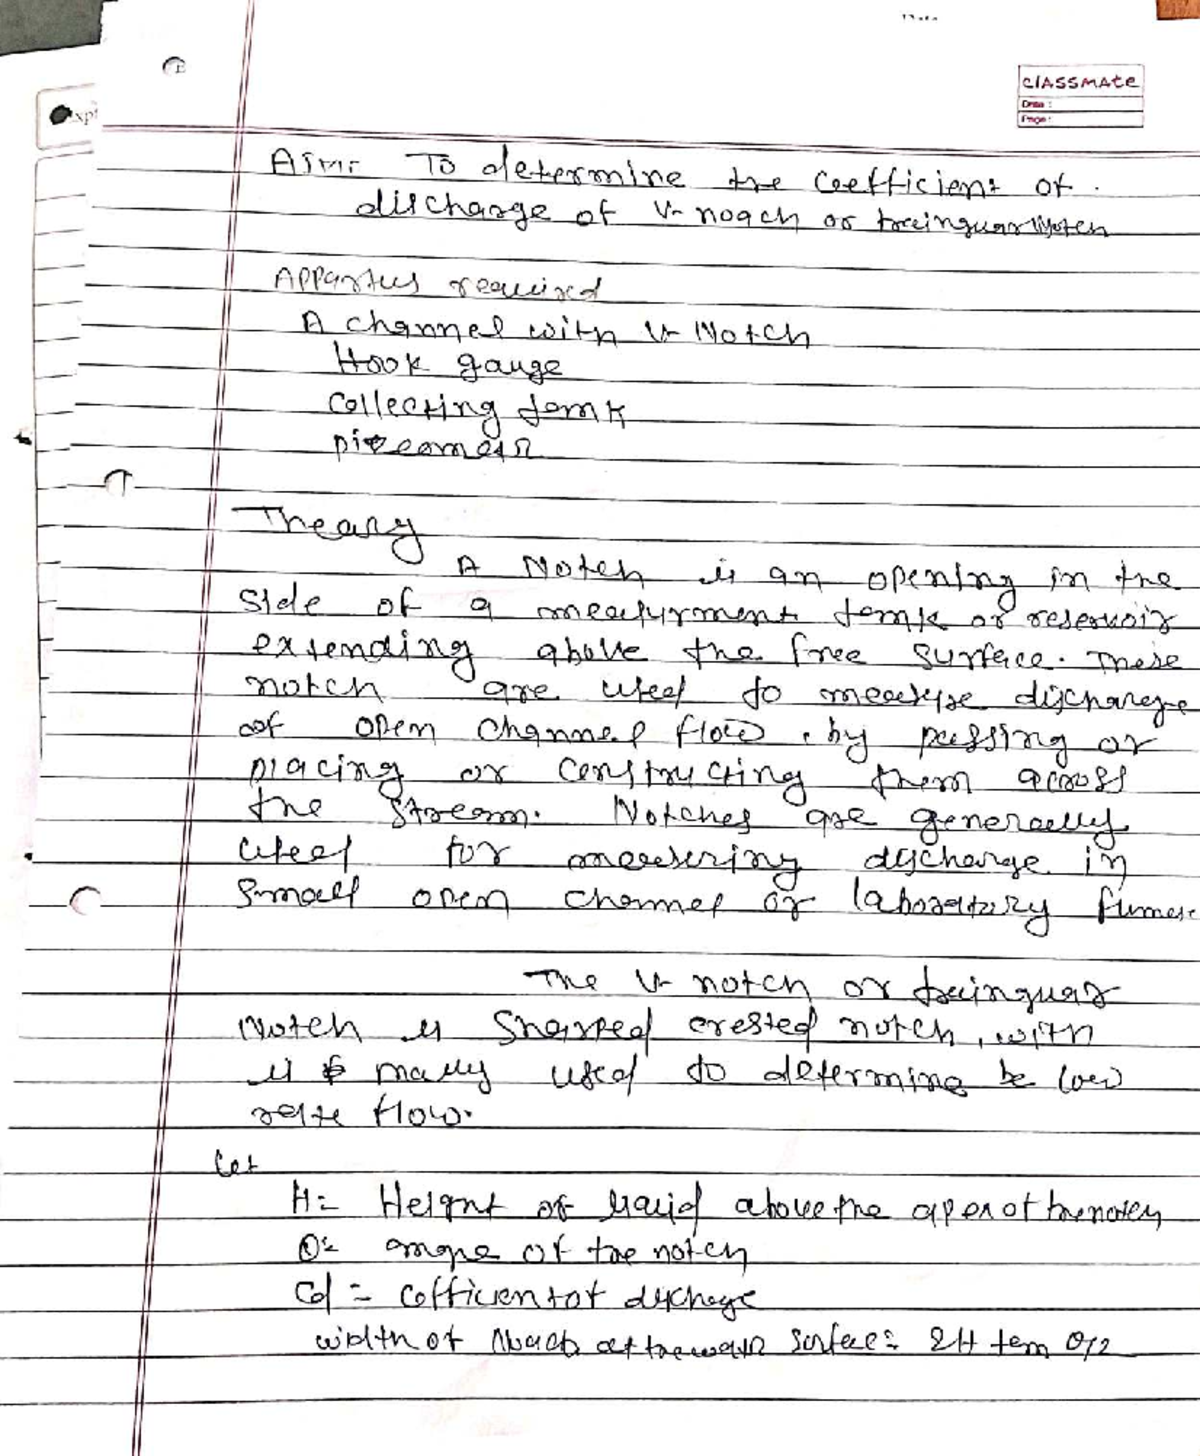 classmate
Date :
Page :
Aim:- To determine the coefficient of
discharge of V- noach or treinguar Notch
Appartus required
A channel with V- Notch
Hook gauge
collecting tank
piezometer
Theary
A Notch is an opening in the
side of a measurment tank or reservoir
extending above the free surface. These
notch are used to measure discharge
of open channel flow, by passing or
placing or constructing them across
the stream. Notches are generally
used for measuring discharge in
small open channel or laboratory flumes.
The V- notch or treinguar
Notch is Sharped crested notch, with
is mainly used to determine be low
rate flow.
Let
H= Height of liquid above the apex of the notch
θ= angle of the notch
Cd = cofficient of discharge
width of at the water surface= 2H tan θ/2